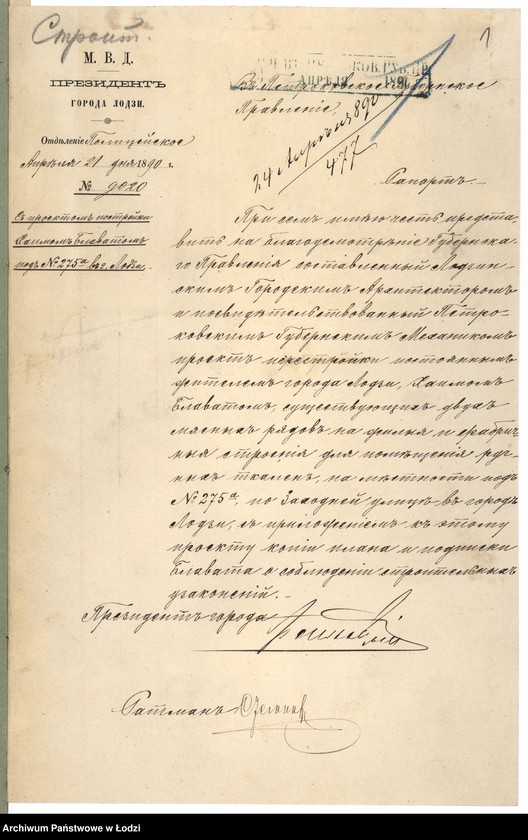 Строит.
1
М. В. Д.
ПРЕЗИДЕНТЪ
ГОРОДА ЛОДЗИ.
Отдѣленіе Полицейское
Апрѣля 21 дня 1890 г.
№ 9020
Съ проектомъ постройки
Хаимомъ Блаватомъ
подъ № 275а въ г. Лодзи.
АПРѢЛЯ 189
Въ Петроковское Губернское
Правленіе,
24 Апрѣля 1890
477
Рапортъ.
При семъ имѣю честь предста-
вить на благоусмотрѣніе Губернска-
го Правленія составленный Лодзин-
скимъ Городскимъ Архитекторомъ
и посвидѣтельствованный Петро-
ковскимъ Губернскимъ Механикомъ
проектъ перестройки постояннымъ
жителемъ города Лодзи, Хаимомъ
Блаватомъ, существующихъ двухъ
мясныхъ рядовъ на жилыя и фабрич-
ныя строенія для помѣщенія руч-
ныхъ ткаленъ, на мѣстности подъ
№ 275а, по Заходней улицѣ въ городѣ
Лодзи, съ приложеніемъ къ этому
проекту копіи плана и подписки
Блавата о соблюденіи строительныхъ
узаконеній.
Президентъ города
Ратманъ
Archiwum Państwowe w Łodzi